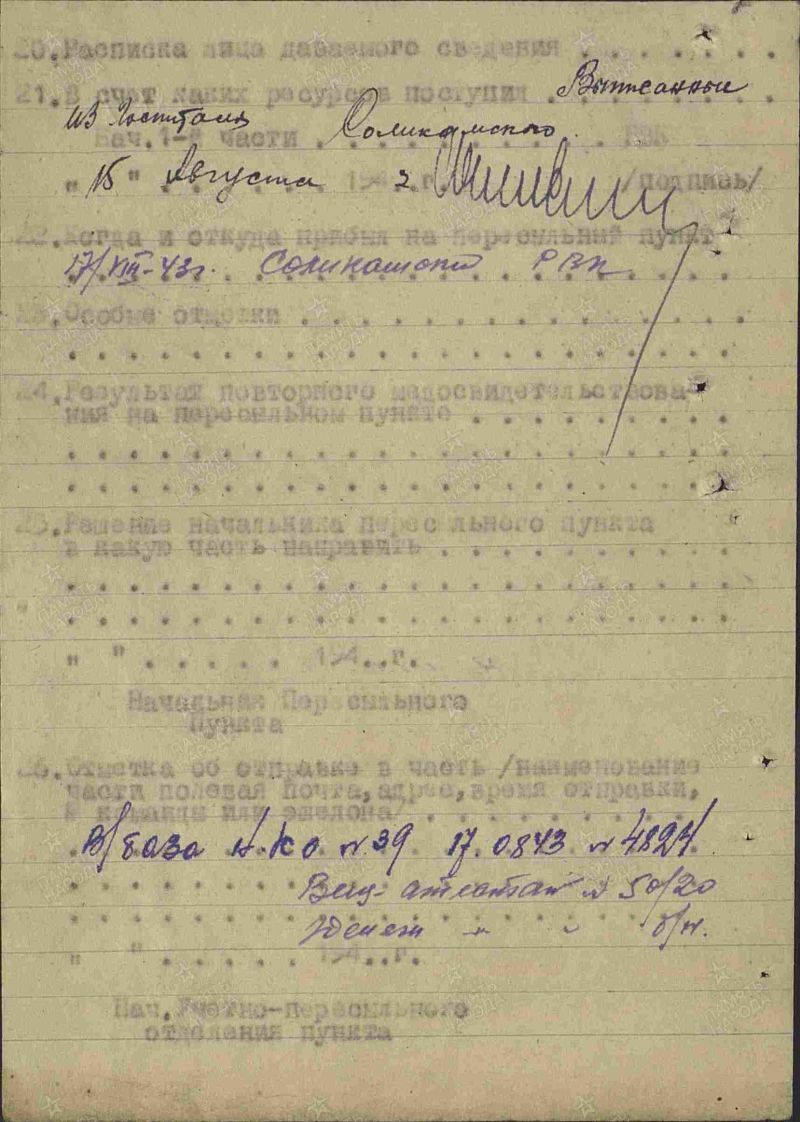 20. Расписка лица даваемого сведения . . . . . . .
21. В счет каких ресурсов поступил . . . Выписанные
из госпиталя
Нач. 1-й части . . . Соликамского . РВК
" 15 " Августа 194 г. /подпись/
22. Когда и откуда прибыл на пересыльный пункт
17/VIII-43г. Соликамский РВК
23. Особые отметки . . . . . . . . . . . . .
24. Результат повторного медосвидетельствова
ния на пересыльном пункте . . . . . . . .
25. Решение начальника перес льного пункта
в какую часть направить . . . . . . . . .
" " . . . . . 194..г.
Начальник Пересыльного
Пункта
26. Отметка об отправке в часть /наименование
части полевая почта, адрес, время отправки,
№ команды или эшелона/ . . . . . . . . .
В/база НКО №39 17.0843 № 4824
Вещ. аттестат № 50/20
Денеж " " б/н.
" " . . . . . 194..г.
Нач. Учетно-пересыльного
отделения пункта